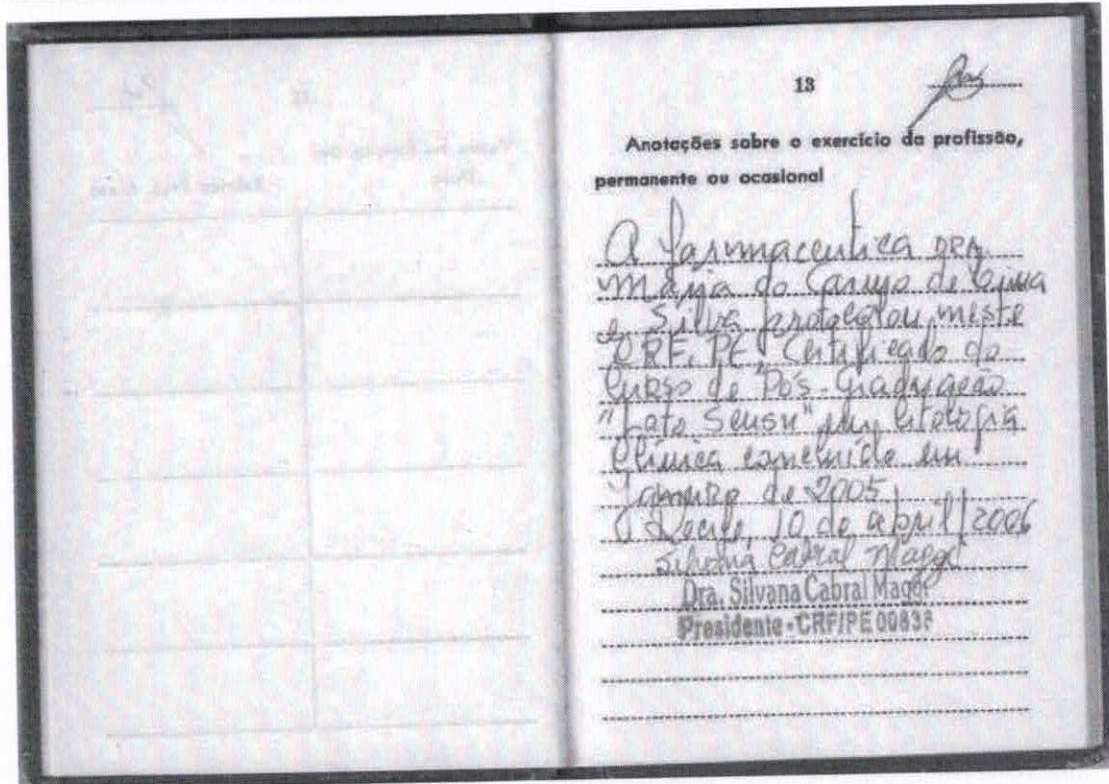 13
Anotações sobre o exercício da profissão,
permanente ou ocasional
A farmaceutica DRA
Maria do Carmo de Lima
e Silva protocolou neste
CRF. PE Certificado do
Curso de Pós-Graduação
"Lato Sensu" em Citologia
Clínica concluído em
Janeiro de 2005
Recife, 10 de abril/2006
Silvana Cabral Maggi
Dra. Silvana Cabral Maggi
Presidente - CRF/PE 00838